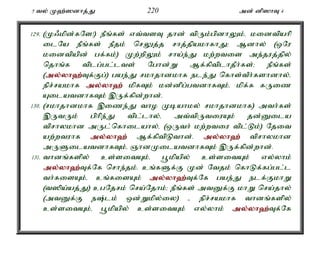 5 வல் முஹ்ஸனாத்து 220 அன் னிஸாவு 4
129. (முஃமின்களே!) நீங்கள் எவ்வளவு தான் விரும்பினாலும், மனைவியரி
டையே நீங்கள் நீதம் செலுத்த சாத்தியமாகாது; ஆனால் (ஒரே
மனைவியின் பக்கம்) முற்றிலும் சாய்ந்து மற்றவளை அந்தரத்தில்
தொங்க விடப்பட்டவள் போன்று ஆக்கிவிடாதீர்கள்; நீங்கள்
(அல்லாஹ்வுக்குப்) பயந்து சமாதானமாக நடந்து கொள்வீர்களானால்,
நிச்சயமாக அல்லாஹ் மிகவும் மன்னிப்பவனாகவும், மிக்க கருணை
யுடையவனாகவும் இருக்கின்றான்.
130. (சமாதானமாக இணைந்து வாழ முடியாமல் சமாதானமாக) அவர்கள்
இருவரும் பிரிந்து விட்டால், அவ்விருவரையும் தன்னுடைய
விசாலமான அருட்கொடையால், (ஒருவர் மற்றவரை விட்டும்) தேவை
யற்றவராக அல்லாஹ் ஆக்கிவிடுவான். அல்லாஹ் விசாலமான
அருளுடையவனாகவும், ஞானமுடையவனாகவும் இருக்கின்றான்.
131. வானங்களில் உள்ளவையும், பூமியில் உள்ளவையும் எல்லாம்
அல்லாஹ்வுக்கே சொந்தம். உங்களுக்கு முன் வேதம் கொடுக்கப்பட்ட
வர்களையும், உங்களையும் அல்லாஹ்வுக்கே பயந்து நடக்குமாறு
(வஸிய்யத்து) உபதேசம் செய்தோம்; நீங்கள் அவனுக்கு மாறு செய்தால்
(அவனுக்கு நஷ்டம் ஒன்றுமில்லை) - நிச்சயமாக வானங்களில்
உள்ளவையும், பூமியில் உள்ளவையும் எல்லாம் அல்லாஹ்வுக்கே